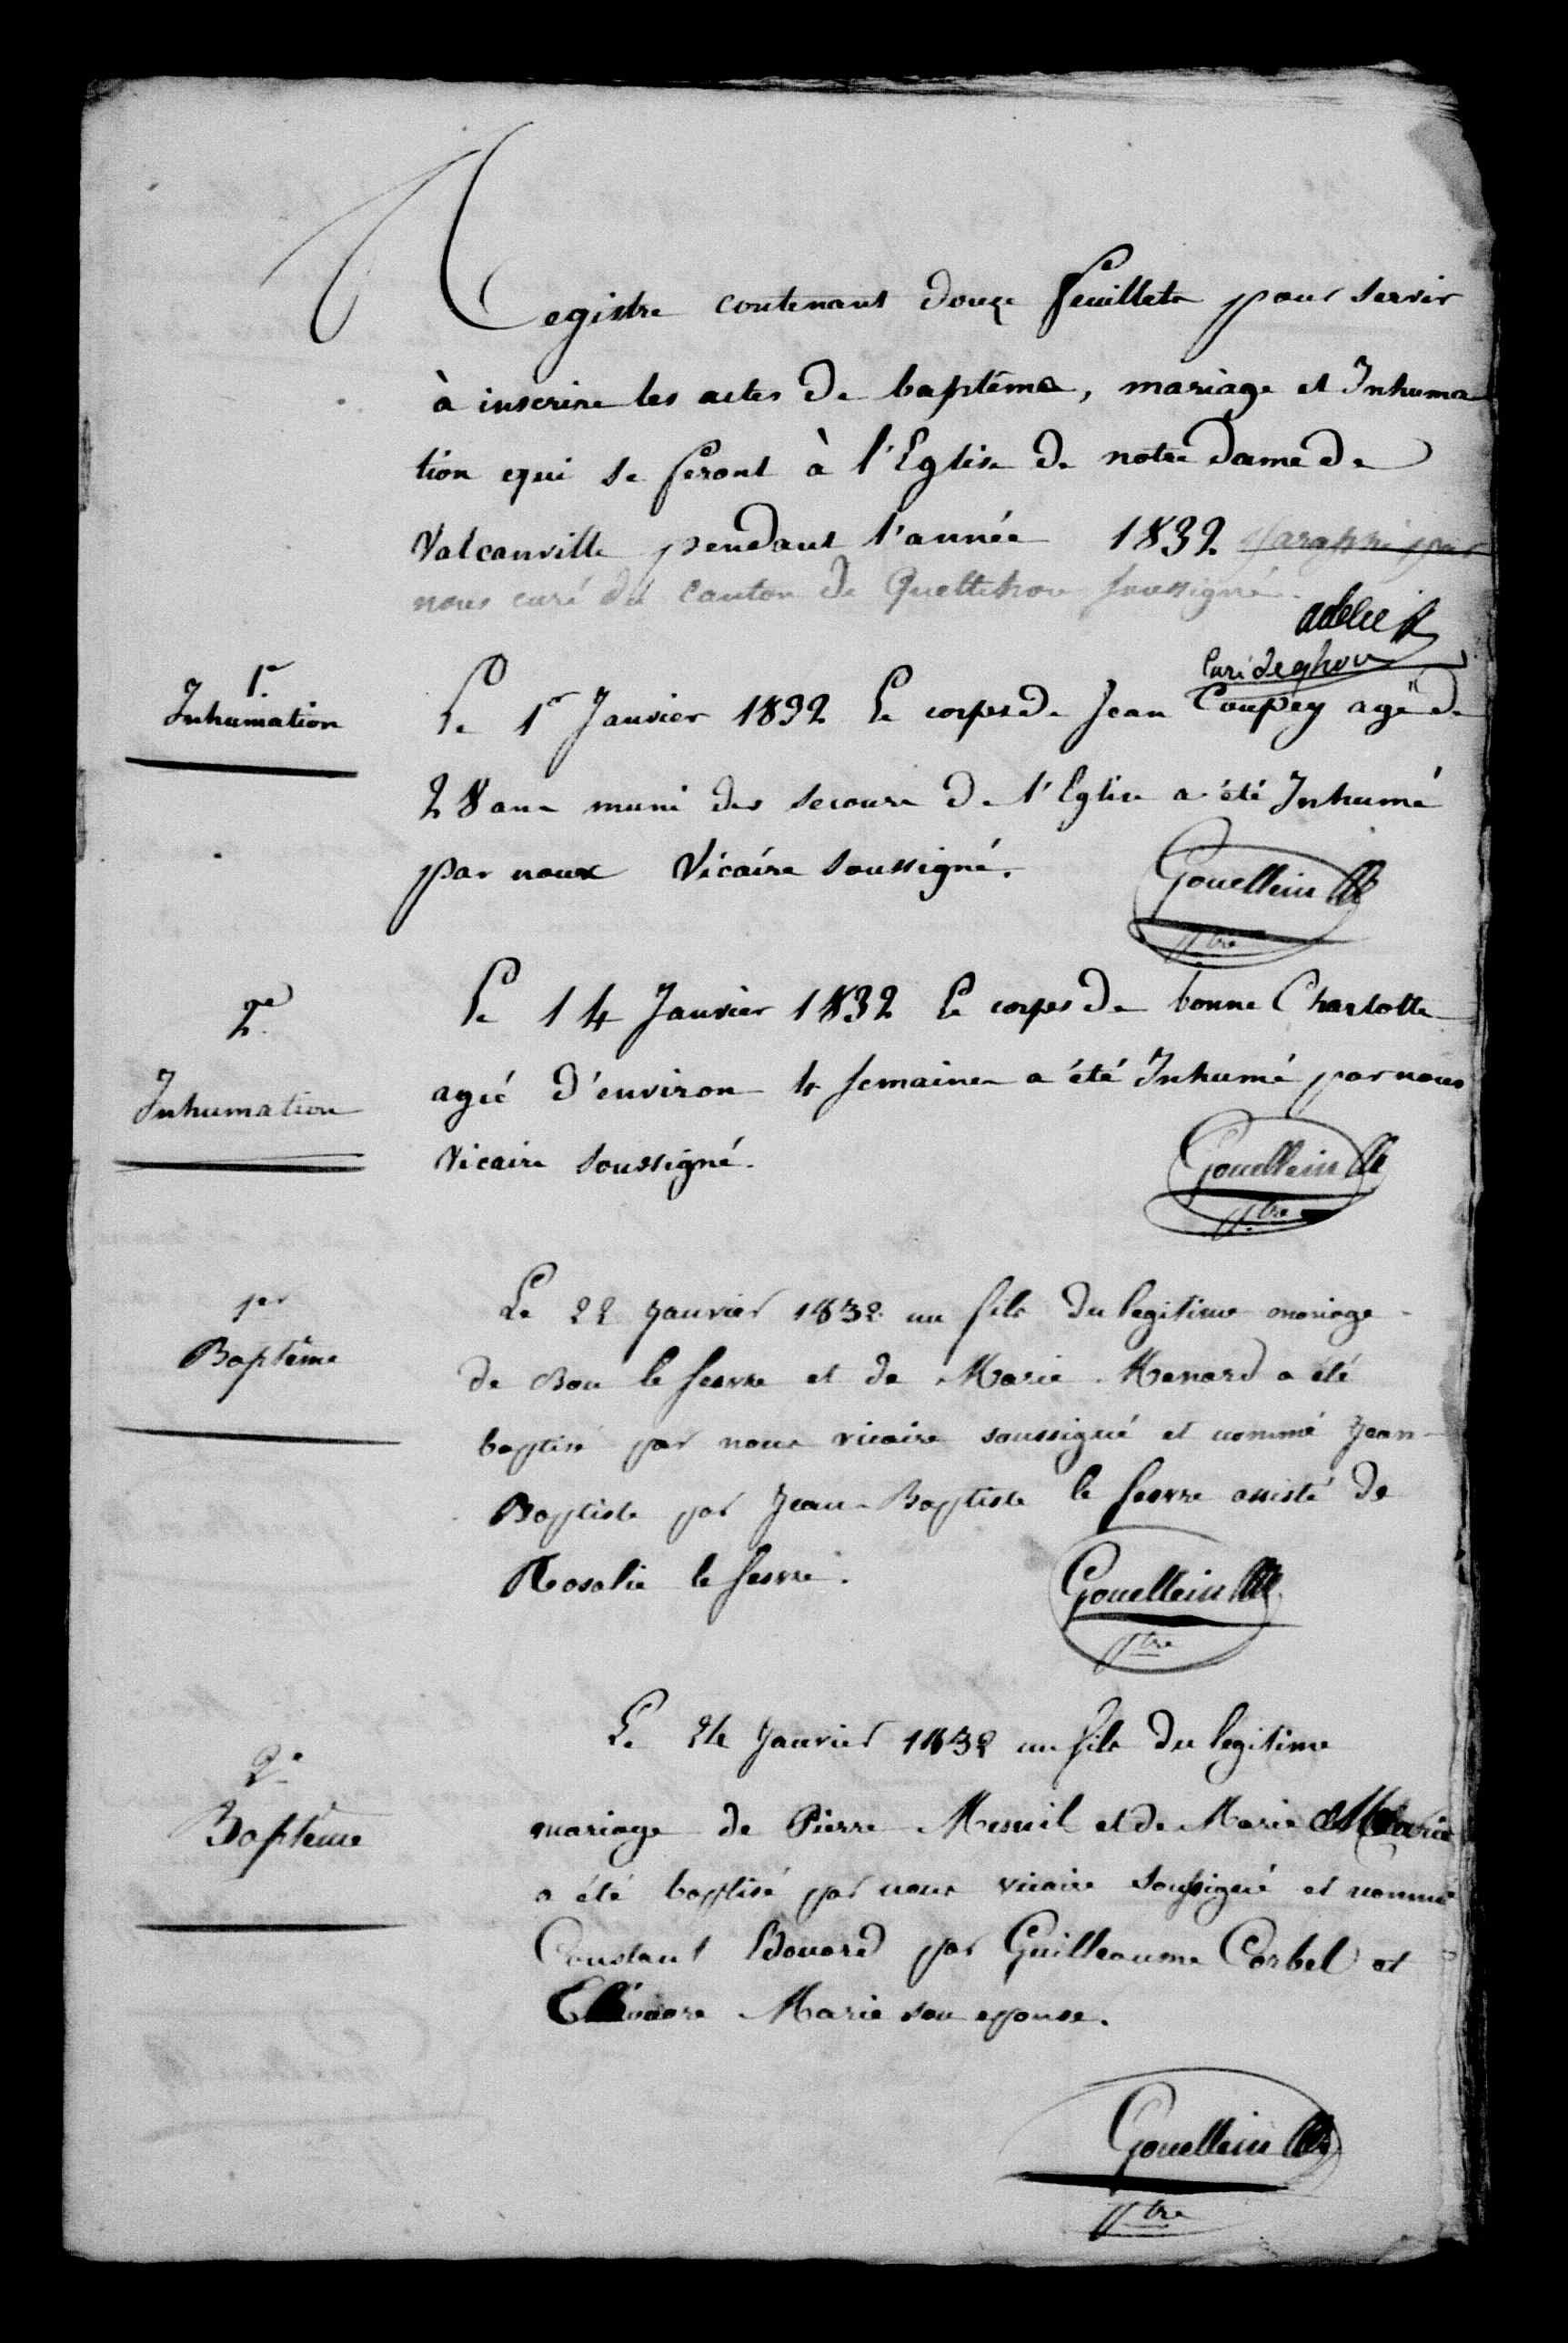 Registre contenant douze feuillets pour servir
à inscrire les actes de baptême, mariage et Inhuma
tion qui se feront à l'Eglise de notre Dame de
Valcanville pendant l'année 1832 paraphé par
nous curé du canton de Quettehou soussigné.
curé de qhou
1r
Inhumation
Le 1r Janvier 1832 Le corps de Jean Coupey agé de
28 ans muni des secours de l'Eglise a été Inhumé
par nous Vicaire soussigné.
Gouellain
ptre
2e
Inhumation
Le 14 Janvier 1832 Le corps de bonne Charlotte
agée d'environ 4 semaines a été Inhumé par nous
Vicaire soussigné.
Gouellain
ptre
1er
Baptême
Le 22 Janvier 1832 un fils du legitime mariage
de Bon le fevre et de Marie Menard a été
baptisé par nous vicaire soussigné et nommé Jean-
Baptiste par Jean-Baptiste le fevre assisté de
Rosalie le fevre.
Gouellain
ptre
2e
Baptême
Le 24 Janvier 1832 un fils du legitime
mariage de Pierre Mesnil et de Marie Marie
a été baptisé par nous vicaire soussigné et nommé
Constant Edouard par Guilleaume Corbel et
Marie son epouse.
Gouellain
ptre